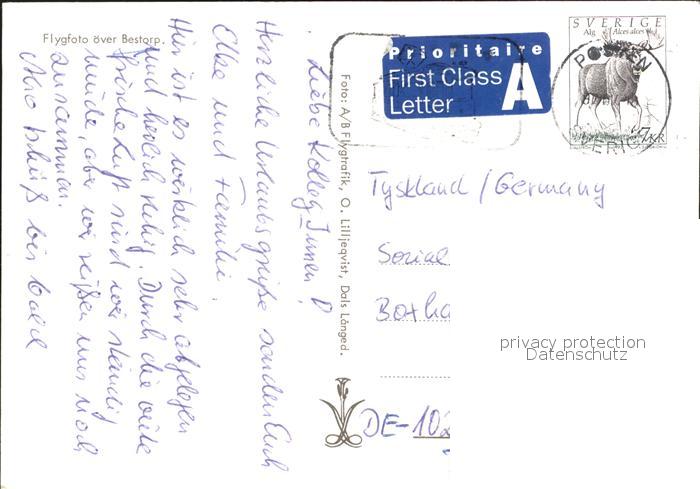 Flygfoto över Bestorp.
Liebe KollegInnen!
Herzliche Urlaubsgrüße senden Euch
Elke und Familie.
Hier ist es wirklich sehr abgelegen
und herrlich ruhig. Durch die viele
frische Luft sind wir ständig
müde, aber wir reißen uns noch
zusammen.
Also tschüß bis bald
Foto: A/B Flygtrafik, O. Lilljeqvist, Dals Långed.
Prioritaire
First Class
Letter
A
SVERIGE
Älg Alces alces
7 KR
Tyskland / Germany
Sozial
Botha
DE-102
privacy protection
Datenschutz